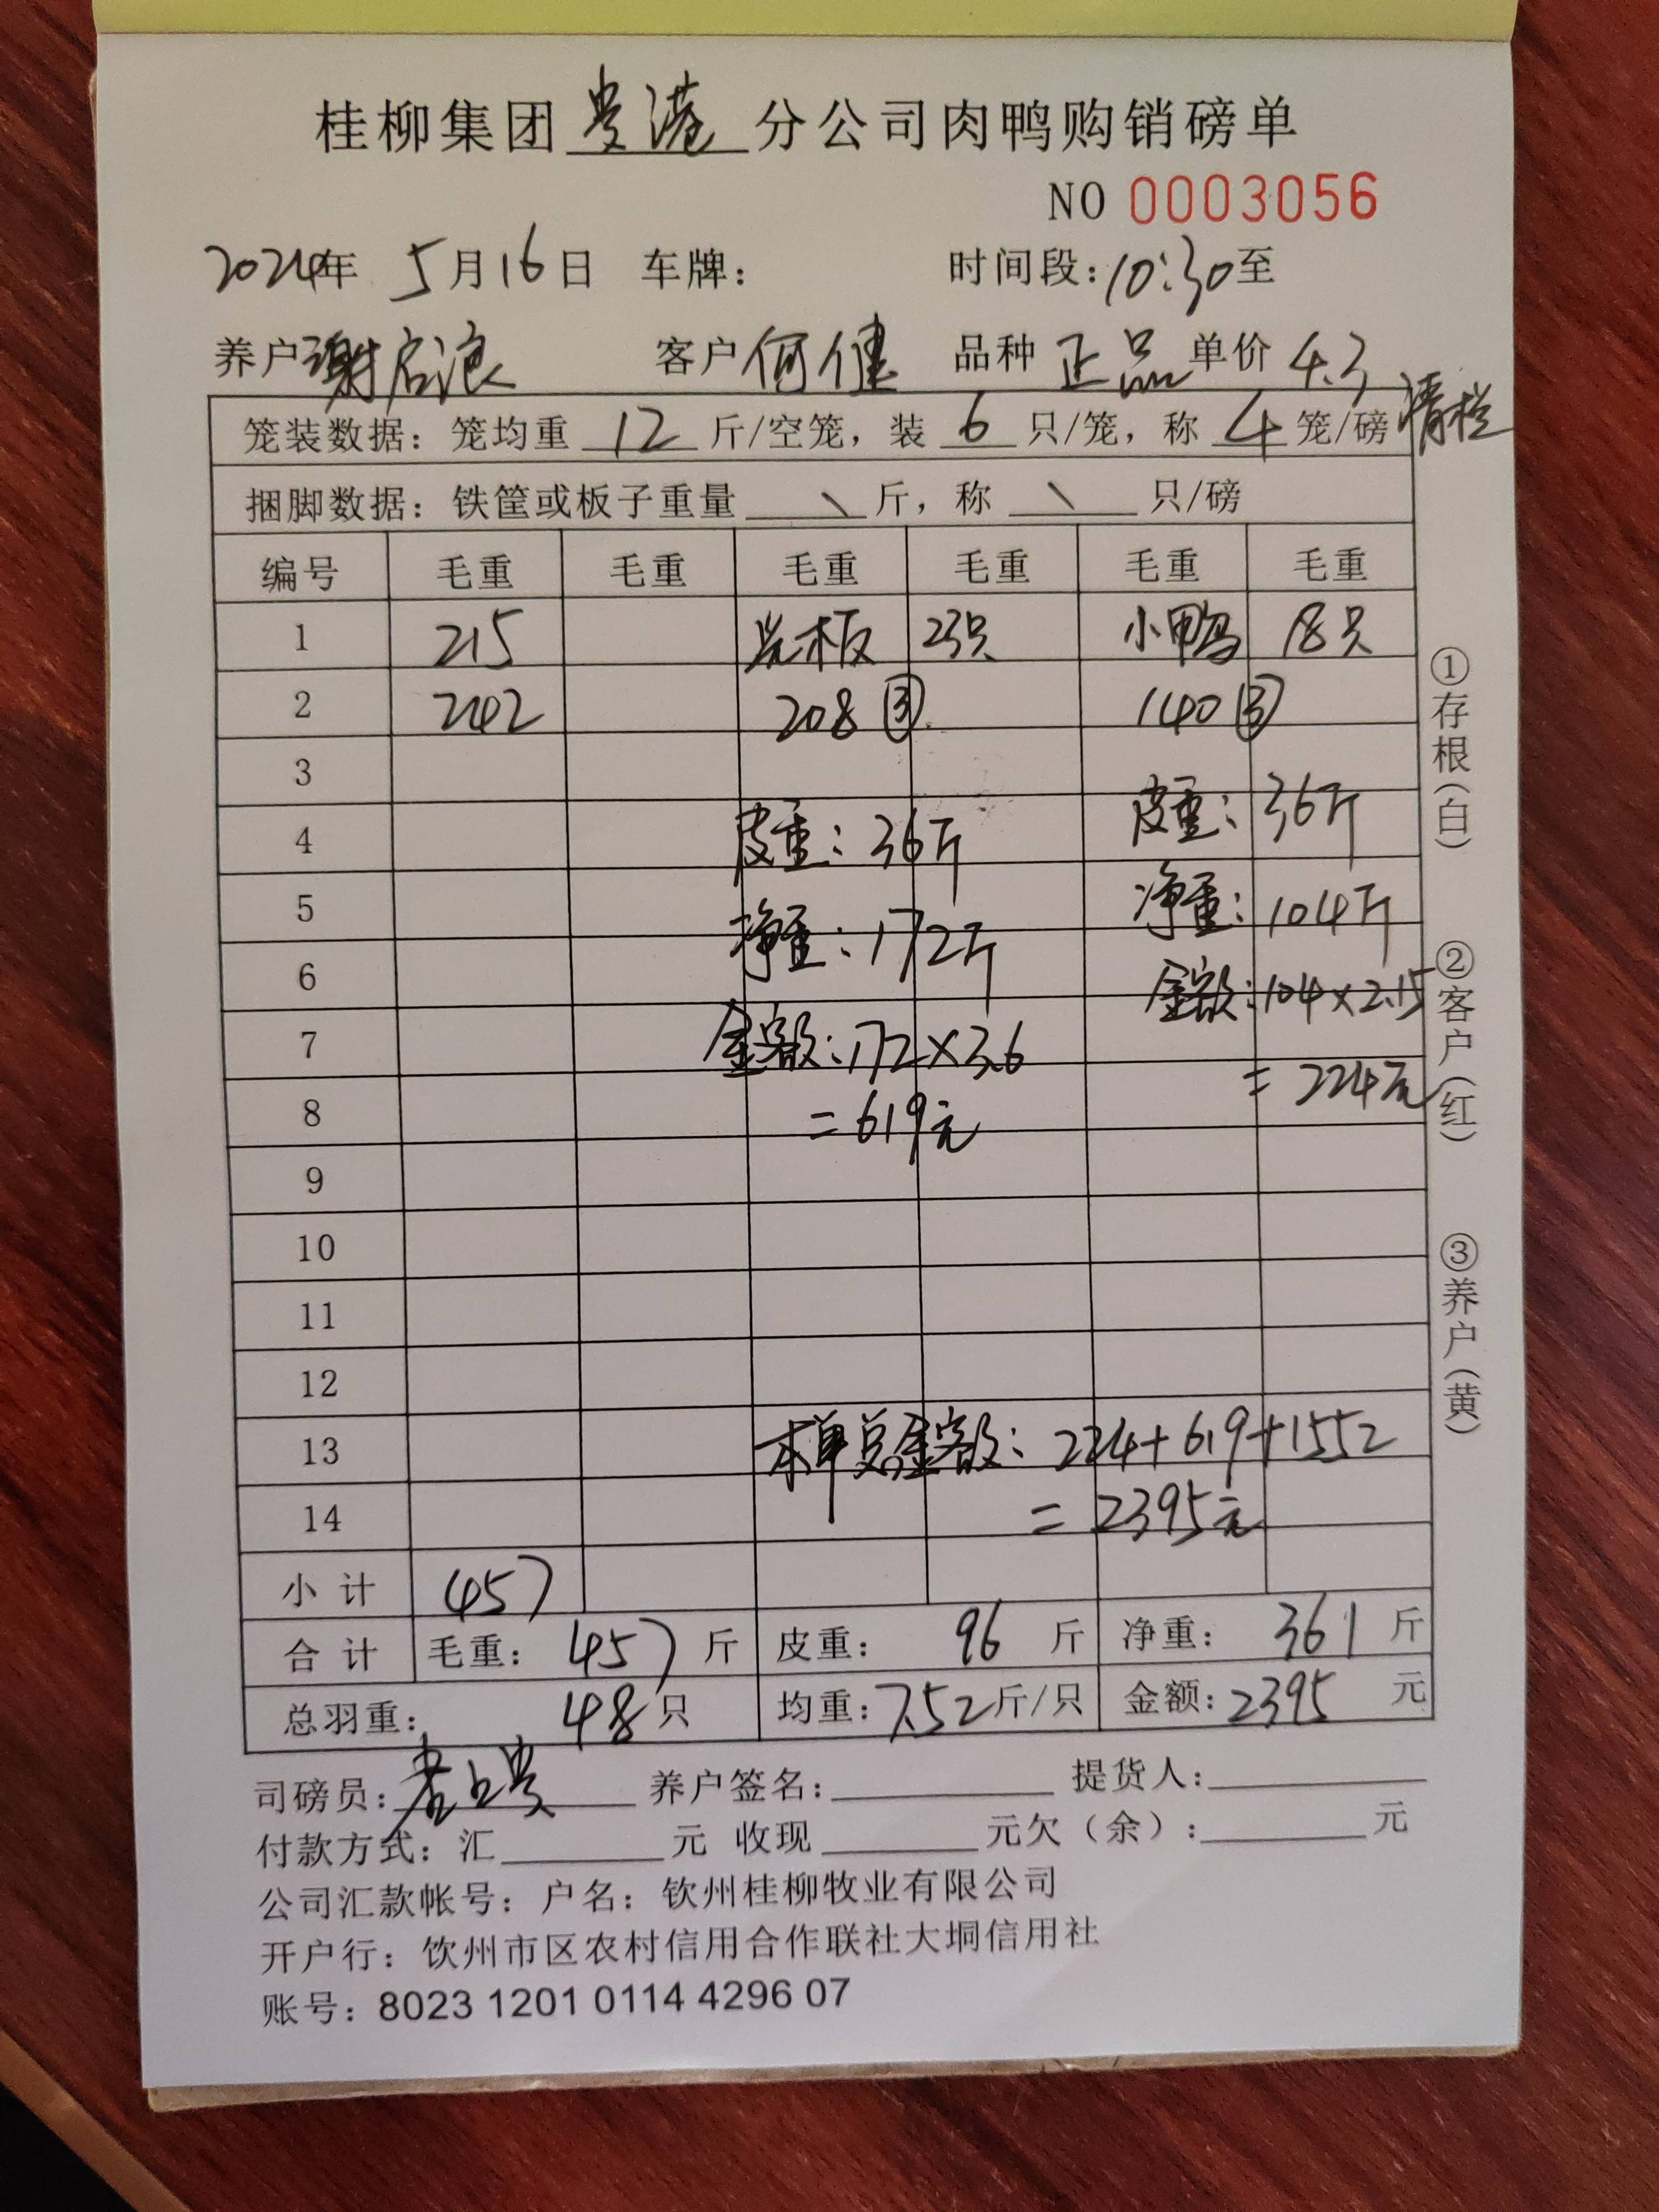 桂柳集团贵港分公司肉鸭购销磅单
NO 0003056
2024年 5月16日 车牌： 时间段：10:30至
养户 谢启浪 客户 何健 品种 正品 单价 4.3
清栏
笼装数据：笼均重 12 斤/空笼，装 6 只/笼，称 4 笼/磅
捆脚数据：铁筐或板子重量 \ 斤，称 \ 只/磅
编号 毛重 毛重 毛重 毛重 毛重 毛重
1 215 光板 23只 小鸭 18只
2 242 208 ③ 140 ③
3
4 皮重：36斤 皮重：36斤
5 净重：172斤 净重：104斤
6 金额：104×2.15
7 金额：172×3.6 =224元
8 =619元
9
10
11
12
13 本单总金额：224+619+1552
14 =2395元
小计 457
合计 毛重：457斤 皮重：96斤 净重：361斤
总羽重：48只 均重：7.52斤/只 金额：2395元
司磅员： 养户签名： 提货人：
付款方式：汇 元 收现 元欠（余）： 元
公司汇款帐号：户名：钦州桂柳牧业有限公司
开户行：饮州市区农村信用合作联社大垌信用社
账号：8023 1201 0114 4296 07
①存根（白）
②客户（红）
③养户（黄）